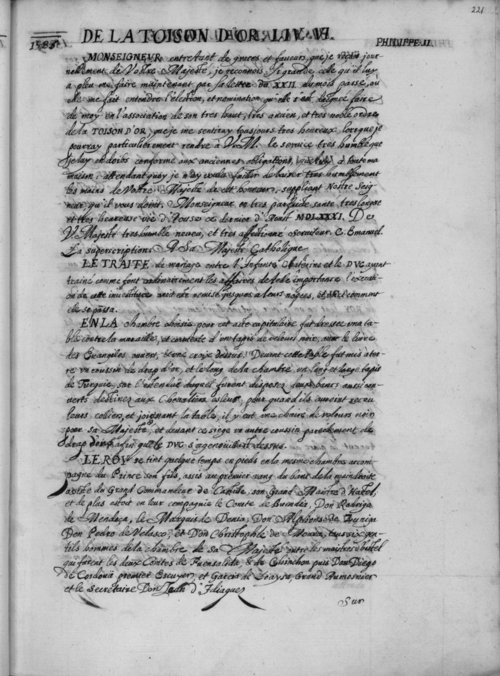 221
1585. DE LA TOISON D'OR. LIV. VI. PHILIPPE II.
MONSEIGNEUR entre tant de graces et faveurs, que je reçois jour-
nellement de Vostre Majesté, je reconnois si grande celle qu'il luy
a pleu me faire maintenant par sa lettre du XXII. du mois passé, ou
elle me fait entendre l'élection, et nomination, qu'elle s'est daignée faire
de moy en l'association de son tres haut, tres ancien, et tres noble ordre
de la TOISON D'OR, me je me sentiray tousjours tres heureux, lorsque je
pourray particulierement rendre à V.M. le service tres humble que
je luy en doibs conforme aux anciennes obligations, de toute ma
maison; attendant quoy je n'ay voulu faillir de baiser tres humblement
les mains de Vostre Majesté de cet honneur, suppliant Nostre Seig-
neur qu'il vous doint, Monseigneur, en tres parfaite santé, tres longue
et tres heureuse vie. D'Yousse ce dernier d'Aoust MDLXXXI. De
V. Majesté tres humble neveu, et tres affectionné serviteur. C. Emanuel.
La superscription: A Sa Majesté Catholique.
LE TRAITÉ de mariage entre l'Infante Catherine et le DUC ayant
traîné comme font ordinairement les affaires de telle importance l'execution
de cette investiture avoit esté remise jusques à leurs nopces, et
elle se passa.
EN LA chambre choisie pour cet acte capitulaire fut dressée une ta-
ble contre la muraille, et couverte d'un tapis de velours noir, avec le livre
des Evangiles ouvert, et une croix dessus: Devant cette table fut mis à ter-
re un coussin de drap d'or, et le long de la chambre un long et large tapis
de Turquie, sur l'estendue duquel furent disposez deux bancs aussi cou-
verts, destinez aux Chevaliers esleus, pour quand ils auroient receu
leurs coliers, et joignant la table, il y eut une chaire de velours noir
pour sa Majesté, et devant ce siege un autre coussin pareillement de
drap d'or afin que le DUC s'agenouillast dessus.
LE ROY se tint quelque temps en pieds en la mesme chambre accom-
pagné du Prince son fils, assis au premier rang du banc de la main droite
du Grand Commandeur de Castille, son Grand Maistre d'Hostel,
et de plus estoit en leur compagnie le Comte de Buendia, Don Rodrigo
de Mendoça, le Marquis de Denia, Don Alphonse de Zuniga
Don Pedro de Velasco, et Don Christophle de Moura, tous six gen-
tils hommes de la chambre de sa Majesté, outre les maistres d'hostel
qui furent les deux Comtes de Fuensalide, & de Chinchon, puis Don Diego
de Cordoua premier Escuyer, et Garcia de Loaysa, Grand Aumosnier
et le secretaire Don d'Idiaquez
Sur